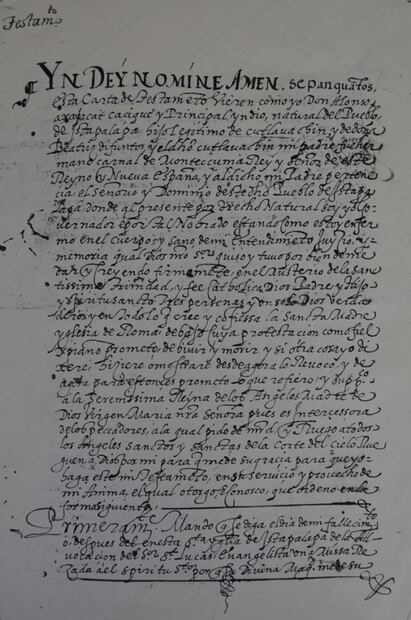 Testam.to
YN DEY NOMINE AMEN. sepan quātos,
esta Carta de testameto Vieren como yo Don Alonso
axayacat Cacique y Principal yndio, natural del Pueblo
de Istapalapa hijo legitimo de cuitlavachin y de doña
Beatris difuntos, y el dho cuitlavachin mi padre fue her
mano carnal de Montecçuma Rey y señor de este
Reyno y Nueva España, y al dicho mi Padre perten
cia, el Señorio y Dominio de este dho Pueblo de Istapa
lapa donde al presente por drecho Natural soy yo go
vernador e por tal Nobrado estando como estoy enfer
mo en el cuerpo, y sano de mi Entendimieto juyzio, y
memoria qual Dios nro sor quiso y tuvo por bien de me
dar y creyendo firmemete en el misterio de la san
tissima trinidad, y fee catholica Dios Padre y hijo
y spiritu sancto tres personas y un solo Dios verda
dero y en todo lo q cree y cofiessa la Sancta Madre
yglesia de Roma debajo cuya protestacion como fiel
xpiano prometo, de bivir y morir, y si otra cosa yo di
xere, hiziere o mostrare desde agora lo Revoco, y de
agora para estonces prometo lo que refiero, y Supp.co
a la serenissima Reyna de los Angeles Madre de
Dios Virgen Maria nra Señora pues es intercessora
de los pecadores, a la qual pido de mrd y Ruego a todos
los Angeles Sanctos y sanctas de la Corte del cielo Rue
guen a Dios por mi para q me de su gracia para que yo
haga este mi testameto, en su servicio y provecho de
mi Anima, el qual otorgo e conosco, que ordeno en la
forma siguiente,
Primeramte. Mando q se diga el dia de mi fallecimto
o, despues del en esta sta yglia de Istapalapa de la Ad
vocacion del sor st Lucas Evangelista una Missa Re
zada a el spiritu sto por q la Divina Magd. me de su